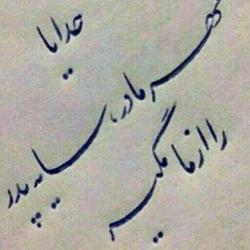 خدایا
مهر مادر،
سایه پدر
را از ما مگیر